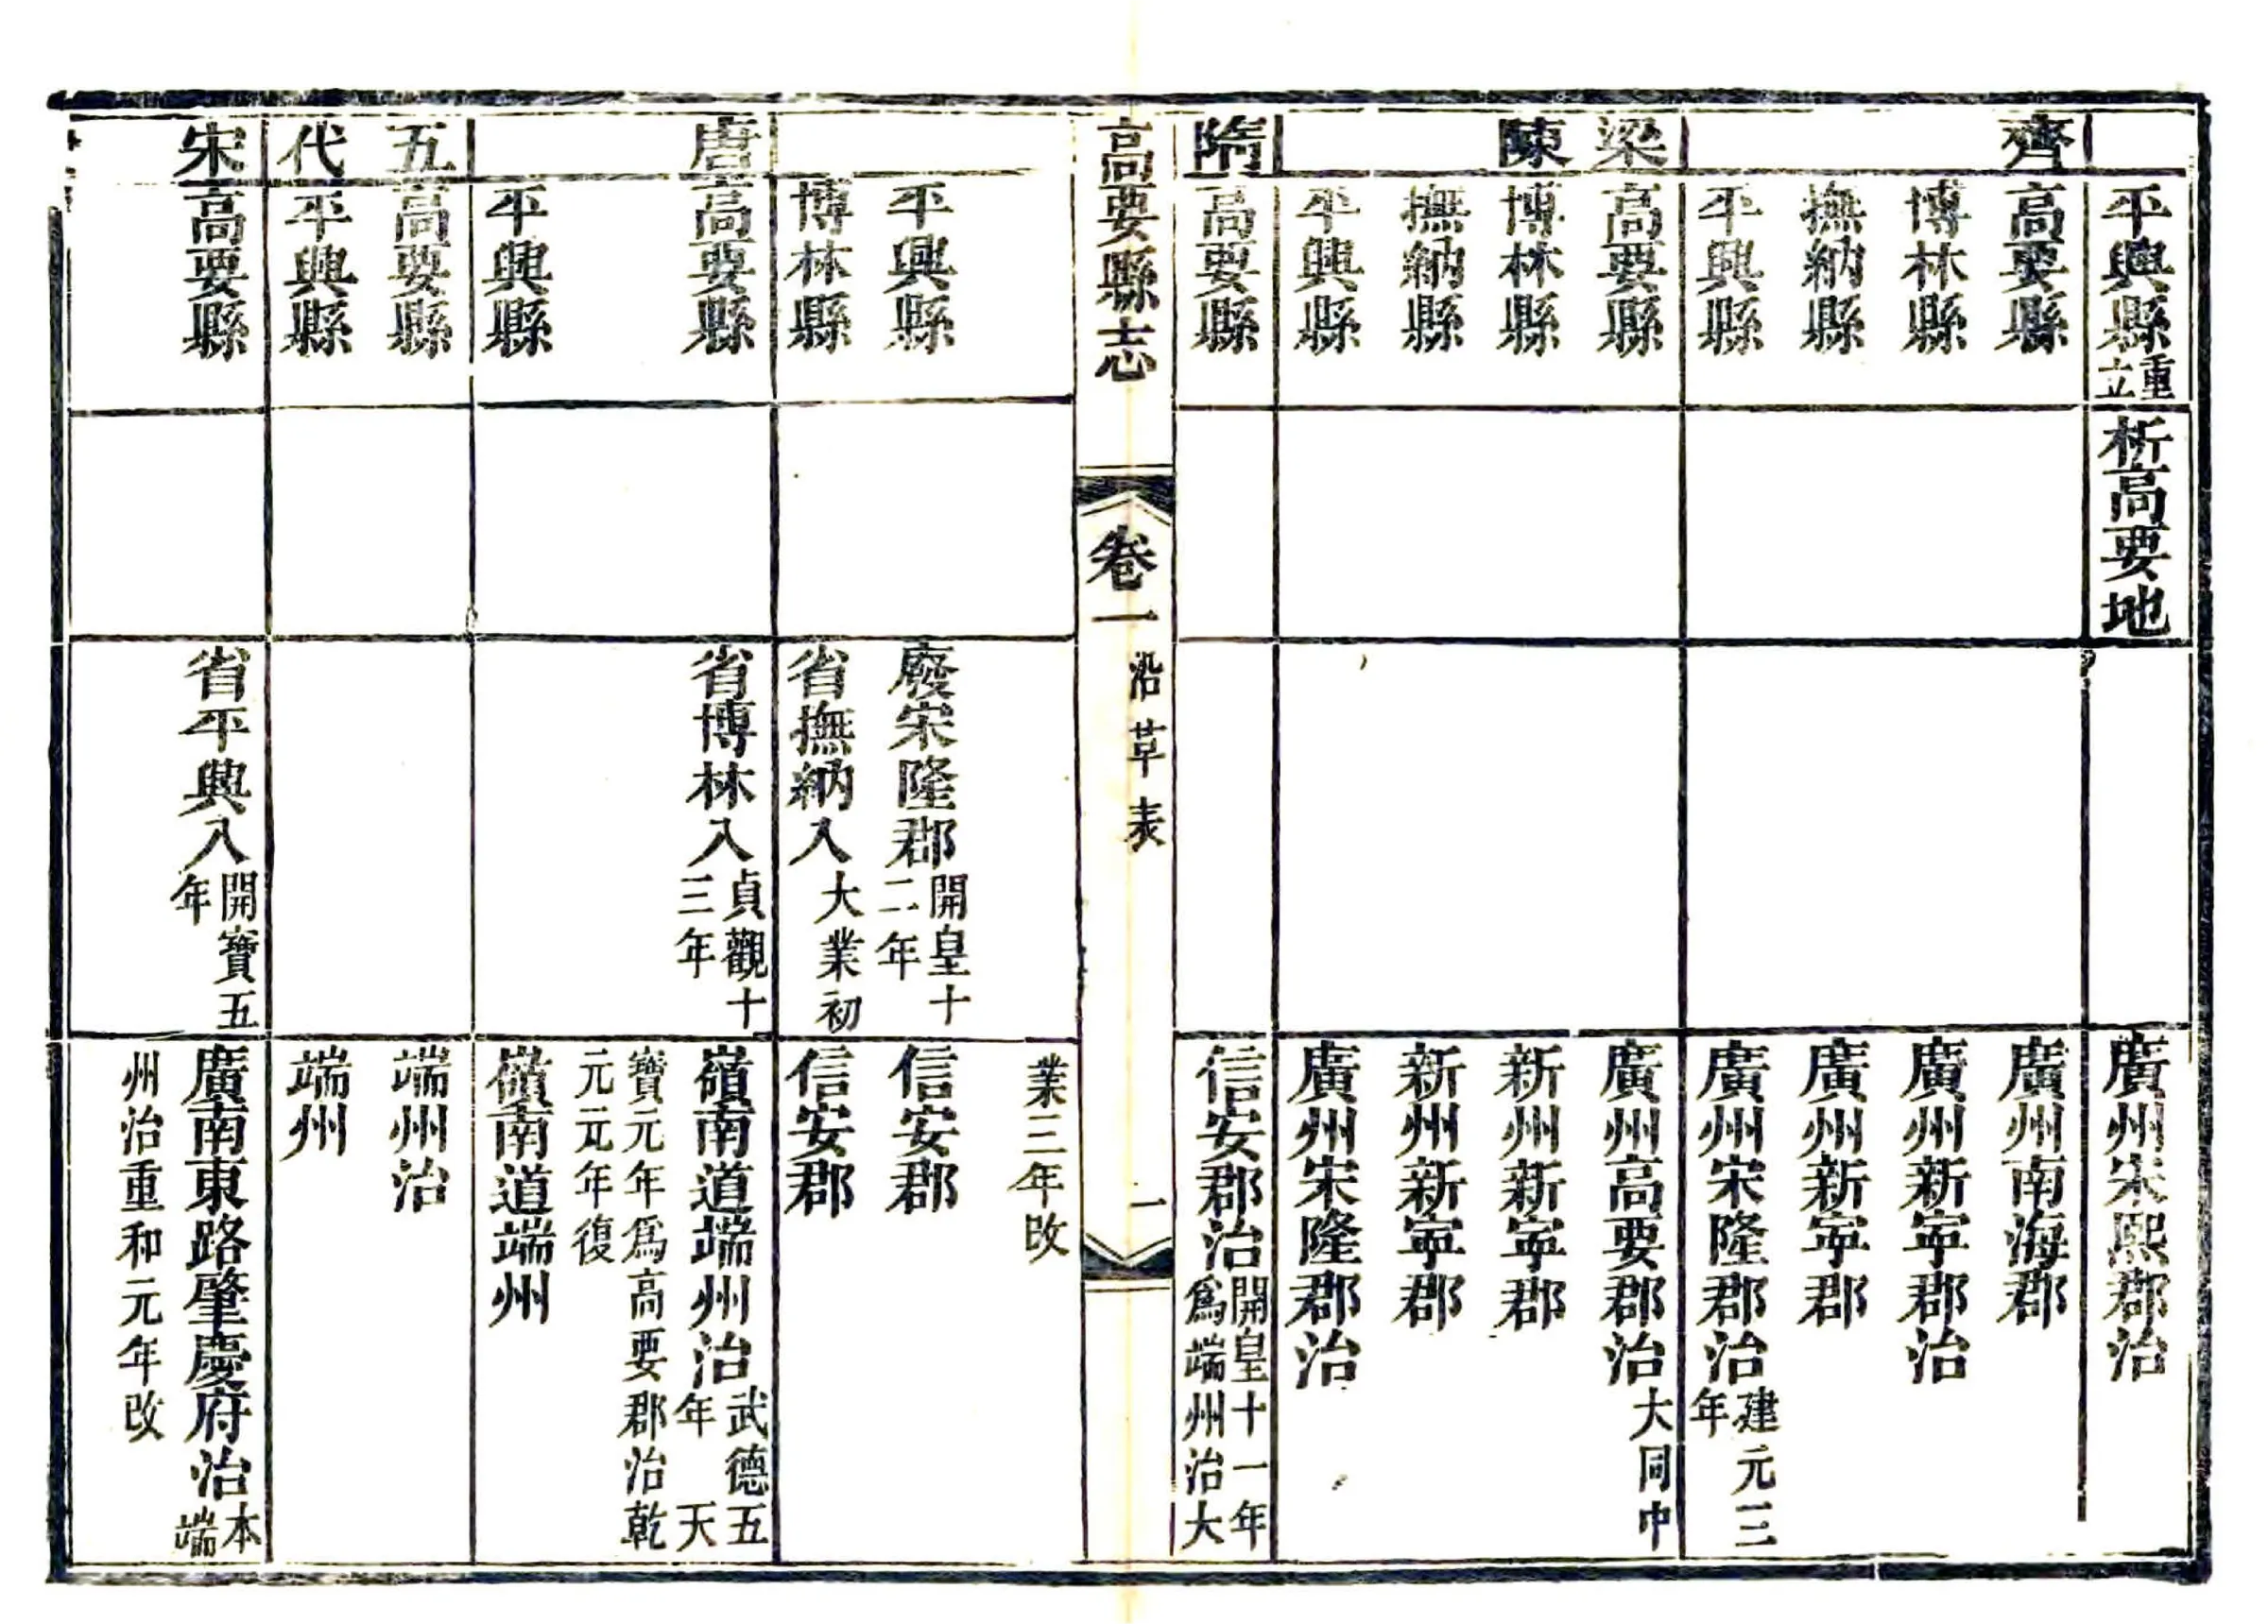 平興縣重立
析高要地
廣州宋熙郡治
齊
高要縣
廣州南海郡
博林縣
廣州新寧郡治
撫納縣
廣州新寧郡
平興縣
廣州宋隆郡治建元三年
梁
高要縣
廣州高要郡治大同中
陳
博林縣
新州新寧郡
撫納縣
新州新寧郡
平興縣
廣州宋隆郡治
隋
高要縣
信安郡治開皇十一年爲端州治大
高要縣志
卷一
沿革表
一
業三年改
平興縣
廢宋隆郡開皇十二年
信安郡
博林縣
省撫納入大業初
信安郡
唐
高要縣
省博林入貞觀十三年
嶺南道端州治武德五年 天
寶元年爲高要郡治乾
元元年復
平興縣
嶺南道端州
五代
高要縣
端州治
平興縣
端州
宋
高要縣
省平興入開寶五年
廣南東路肇慶府治本端
州治重和元年改